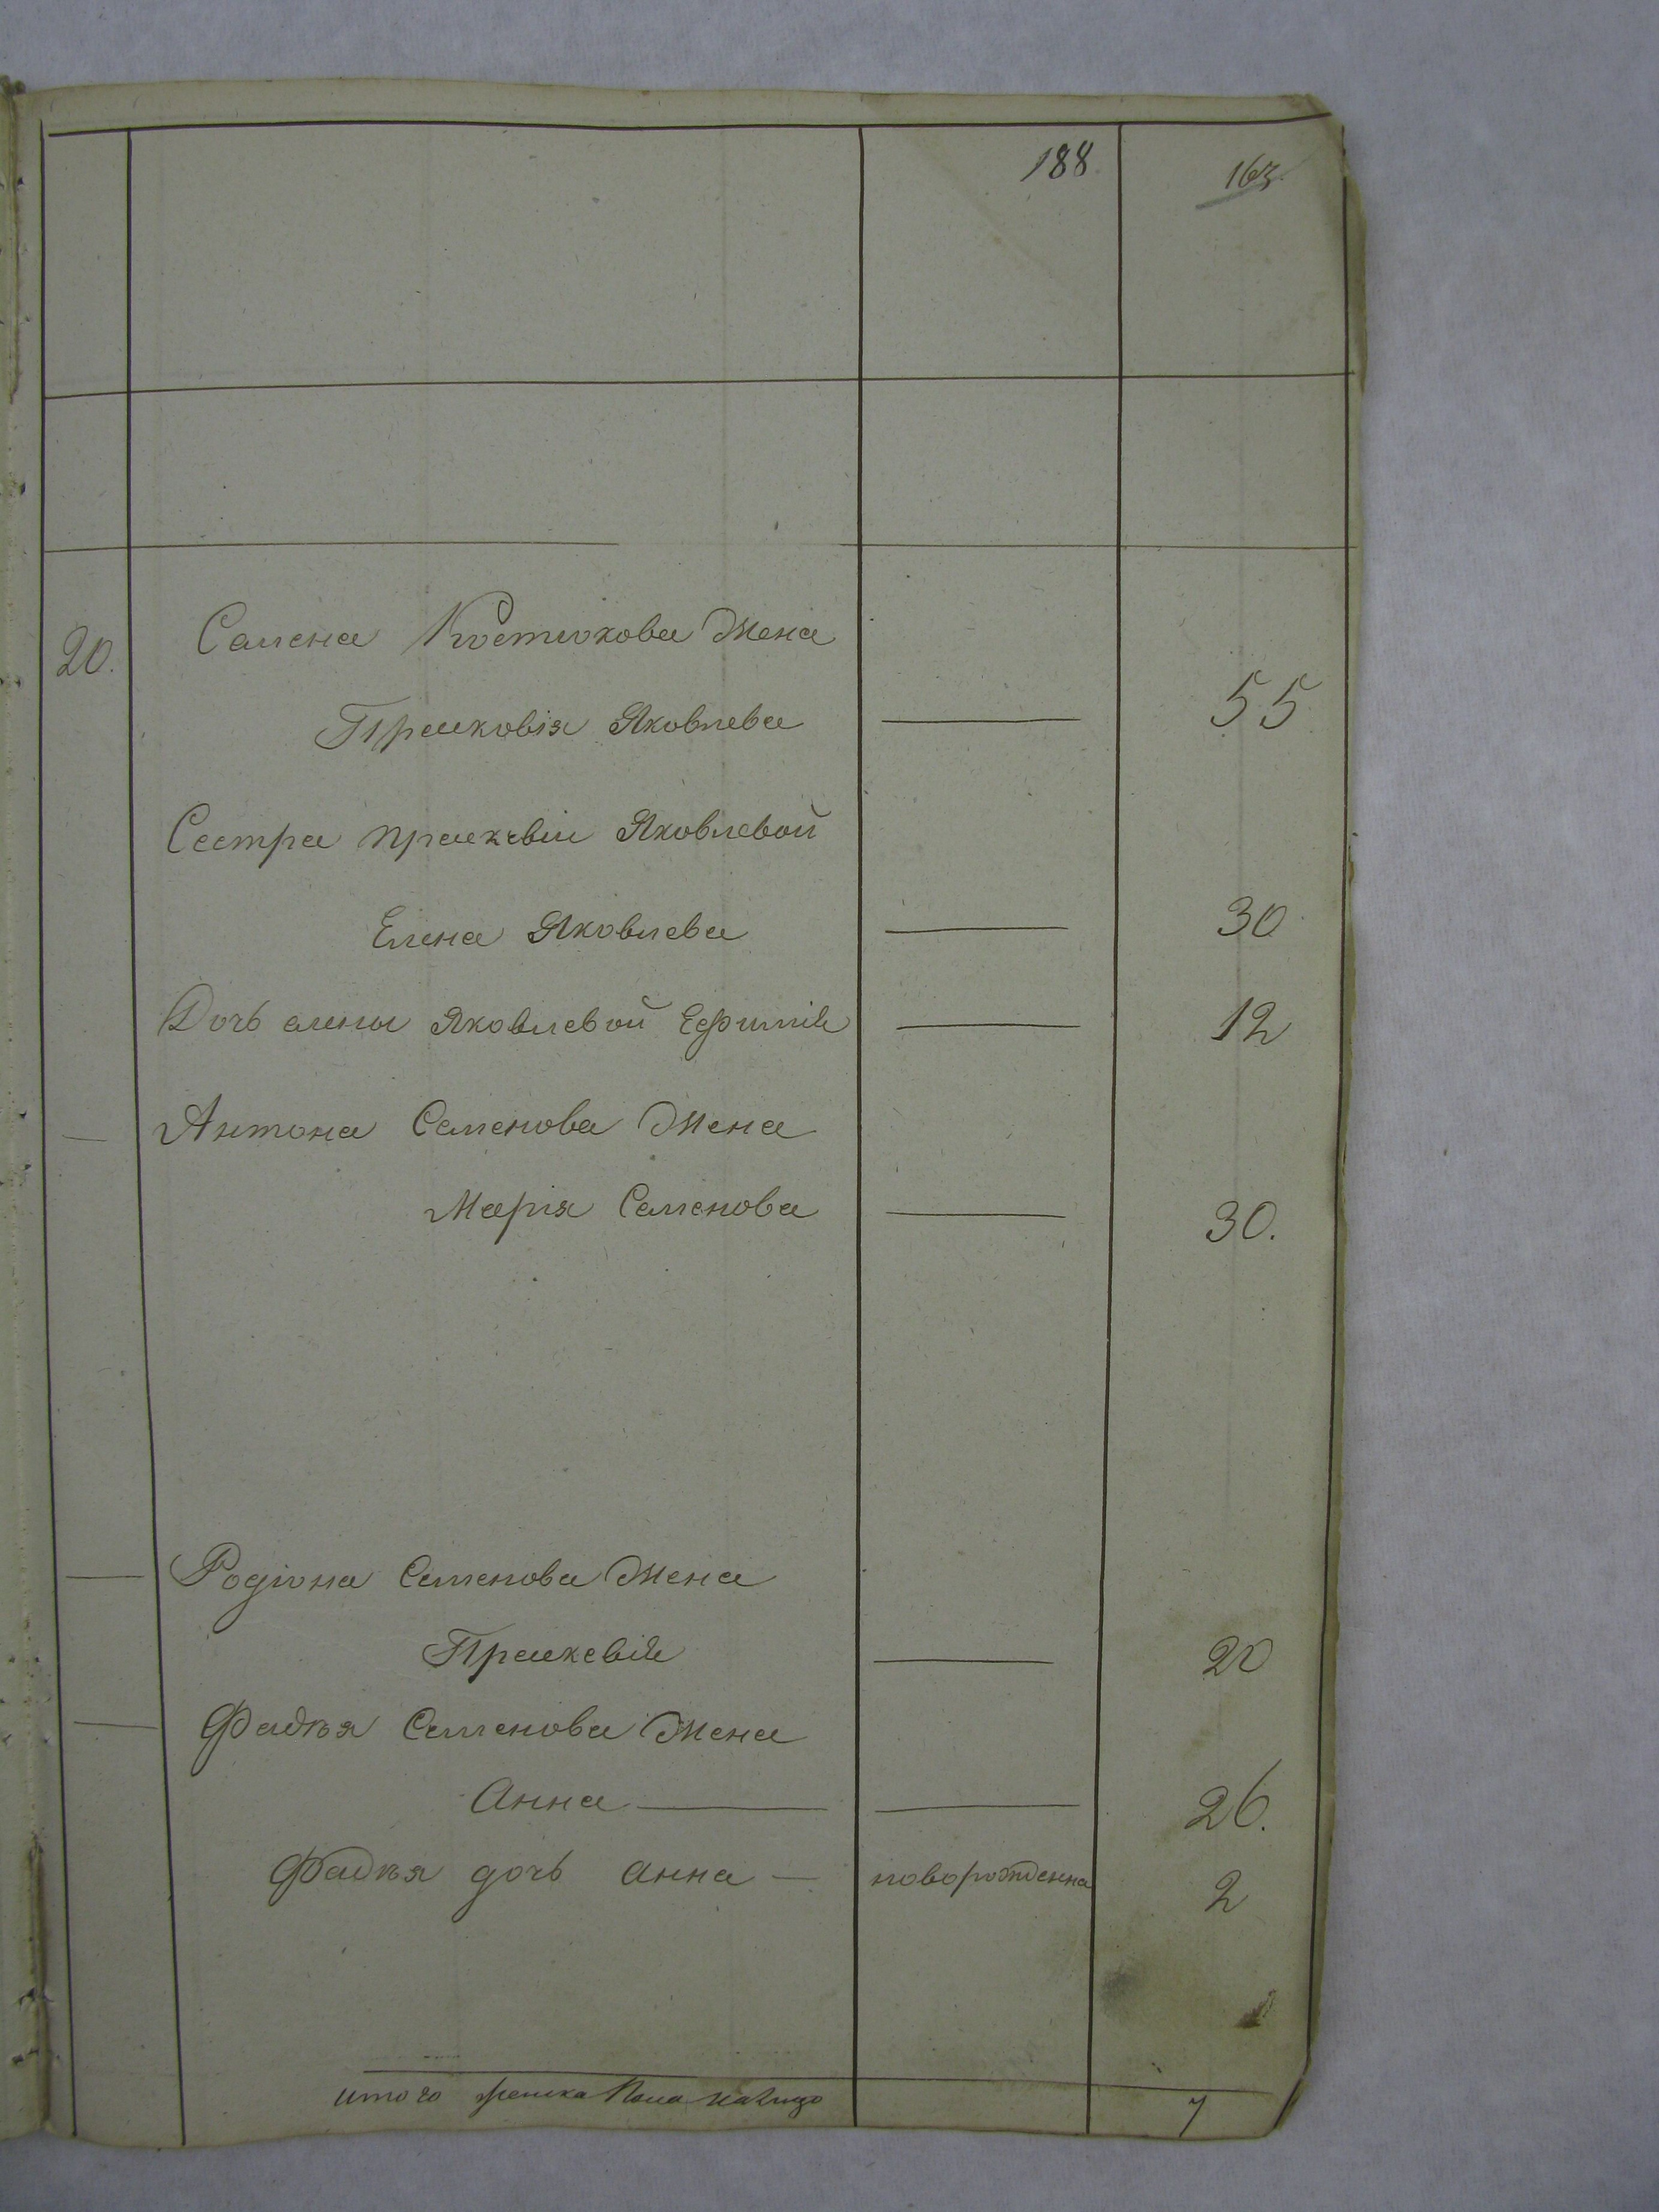 188. 163.
20. Самена Костюкова Жена
Прасковія Яковлева 55
Сестра прасковіи Яковлевой
Елена Яковлева 30
Дочь алены Яковлевой Ефимія 12
Антона Семенова Жена
Марія Семенова 30.
Родіона Семенова Жена
Прасковія 20
Фадѣя Семенова Жена
Анна 26.
Фадѣя дочь анна новорожденна 2
итого женска Пола налицо 7